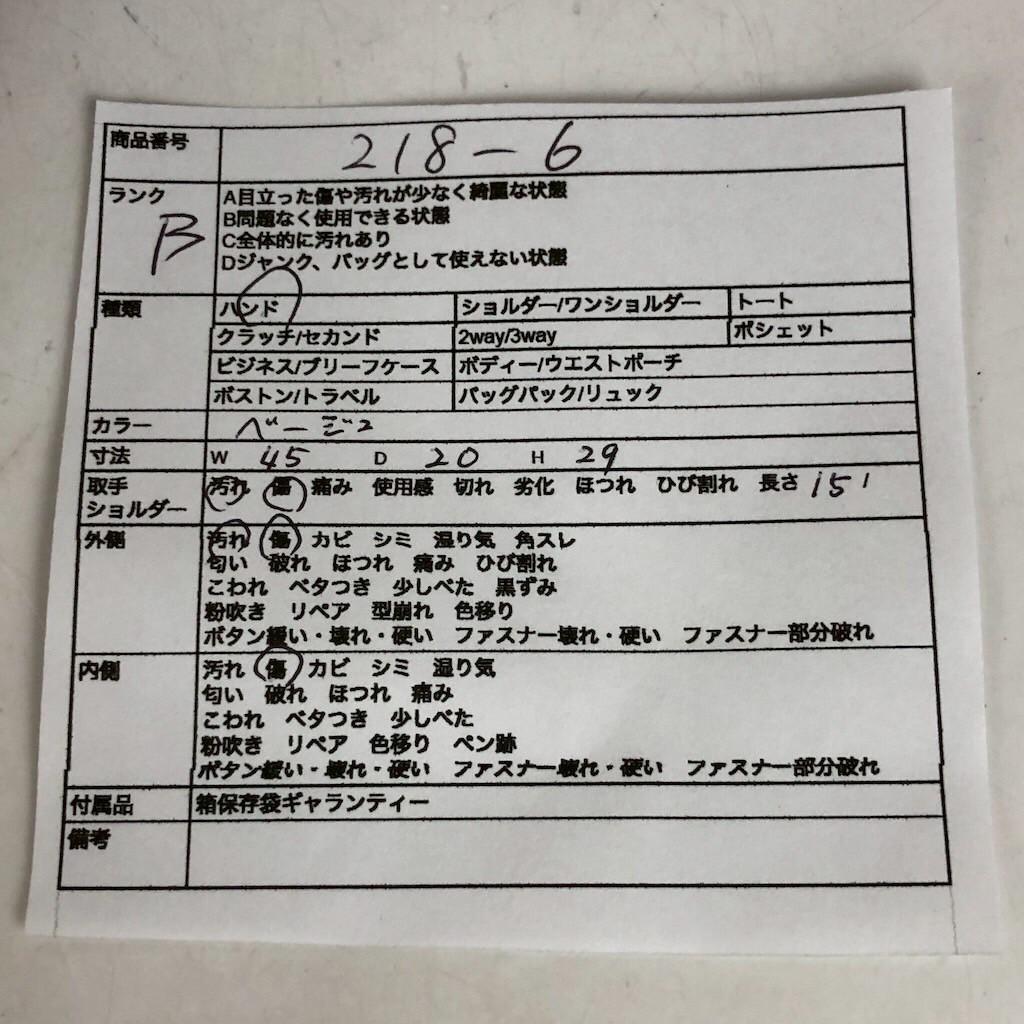 商品番号 218-6
ランク B
A目立った傷や汚れが少なく綺麗な状態
B問題なく使用できる状態
C全体的に汚れあり
Dジャンク、バッグとして使えない状態
種類 ハンド ショルダー/ワンショルダー トート
クラッチ/セカンド 2way/3way ポシェット
ビジネス/ブリーフケース ボディー/ウエストポーチ
ボストン/トラベル バッグパック/リュック
カラー ベージュ
寸法 W 45 D 20 H 29
取手 汚れ 傷 痛み 使用感 切れ 劣化 ほつれ ひび割れ 長さ
ショルダー
外側 汚れ 傷 カビ シミ 湿り気 角スレ
匂い 破れ ほつれ 痛み ひび割れ
こわれ ベタつき 少しべた 黒ずみ
粉吹き リペア 型崩れ 色移り
ボタン緩い・壊れ・硬い ファスナー壊れ・硬い ファスナー部分破れ
内側 汚れ 傷 カビ シミ 湿り気
匂い 破れ ほつれ 痛み
こわれ ベタつき 少しべた
粉吹き リペア 色移り ペン跡
ボタン緩い・壊れ・硬い ファスナー壊れ・硬い ファスナー部分破れ
付属品 箱保存袋ギャランティー
備考